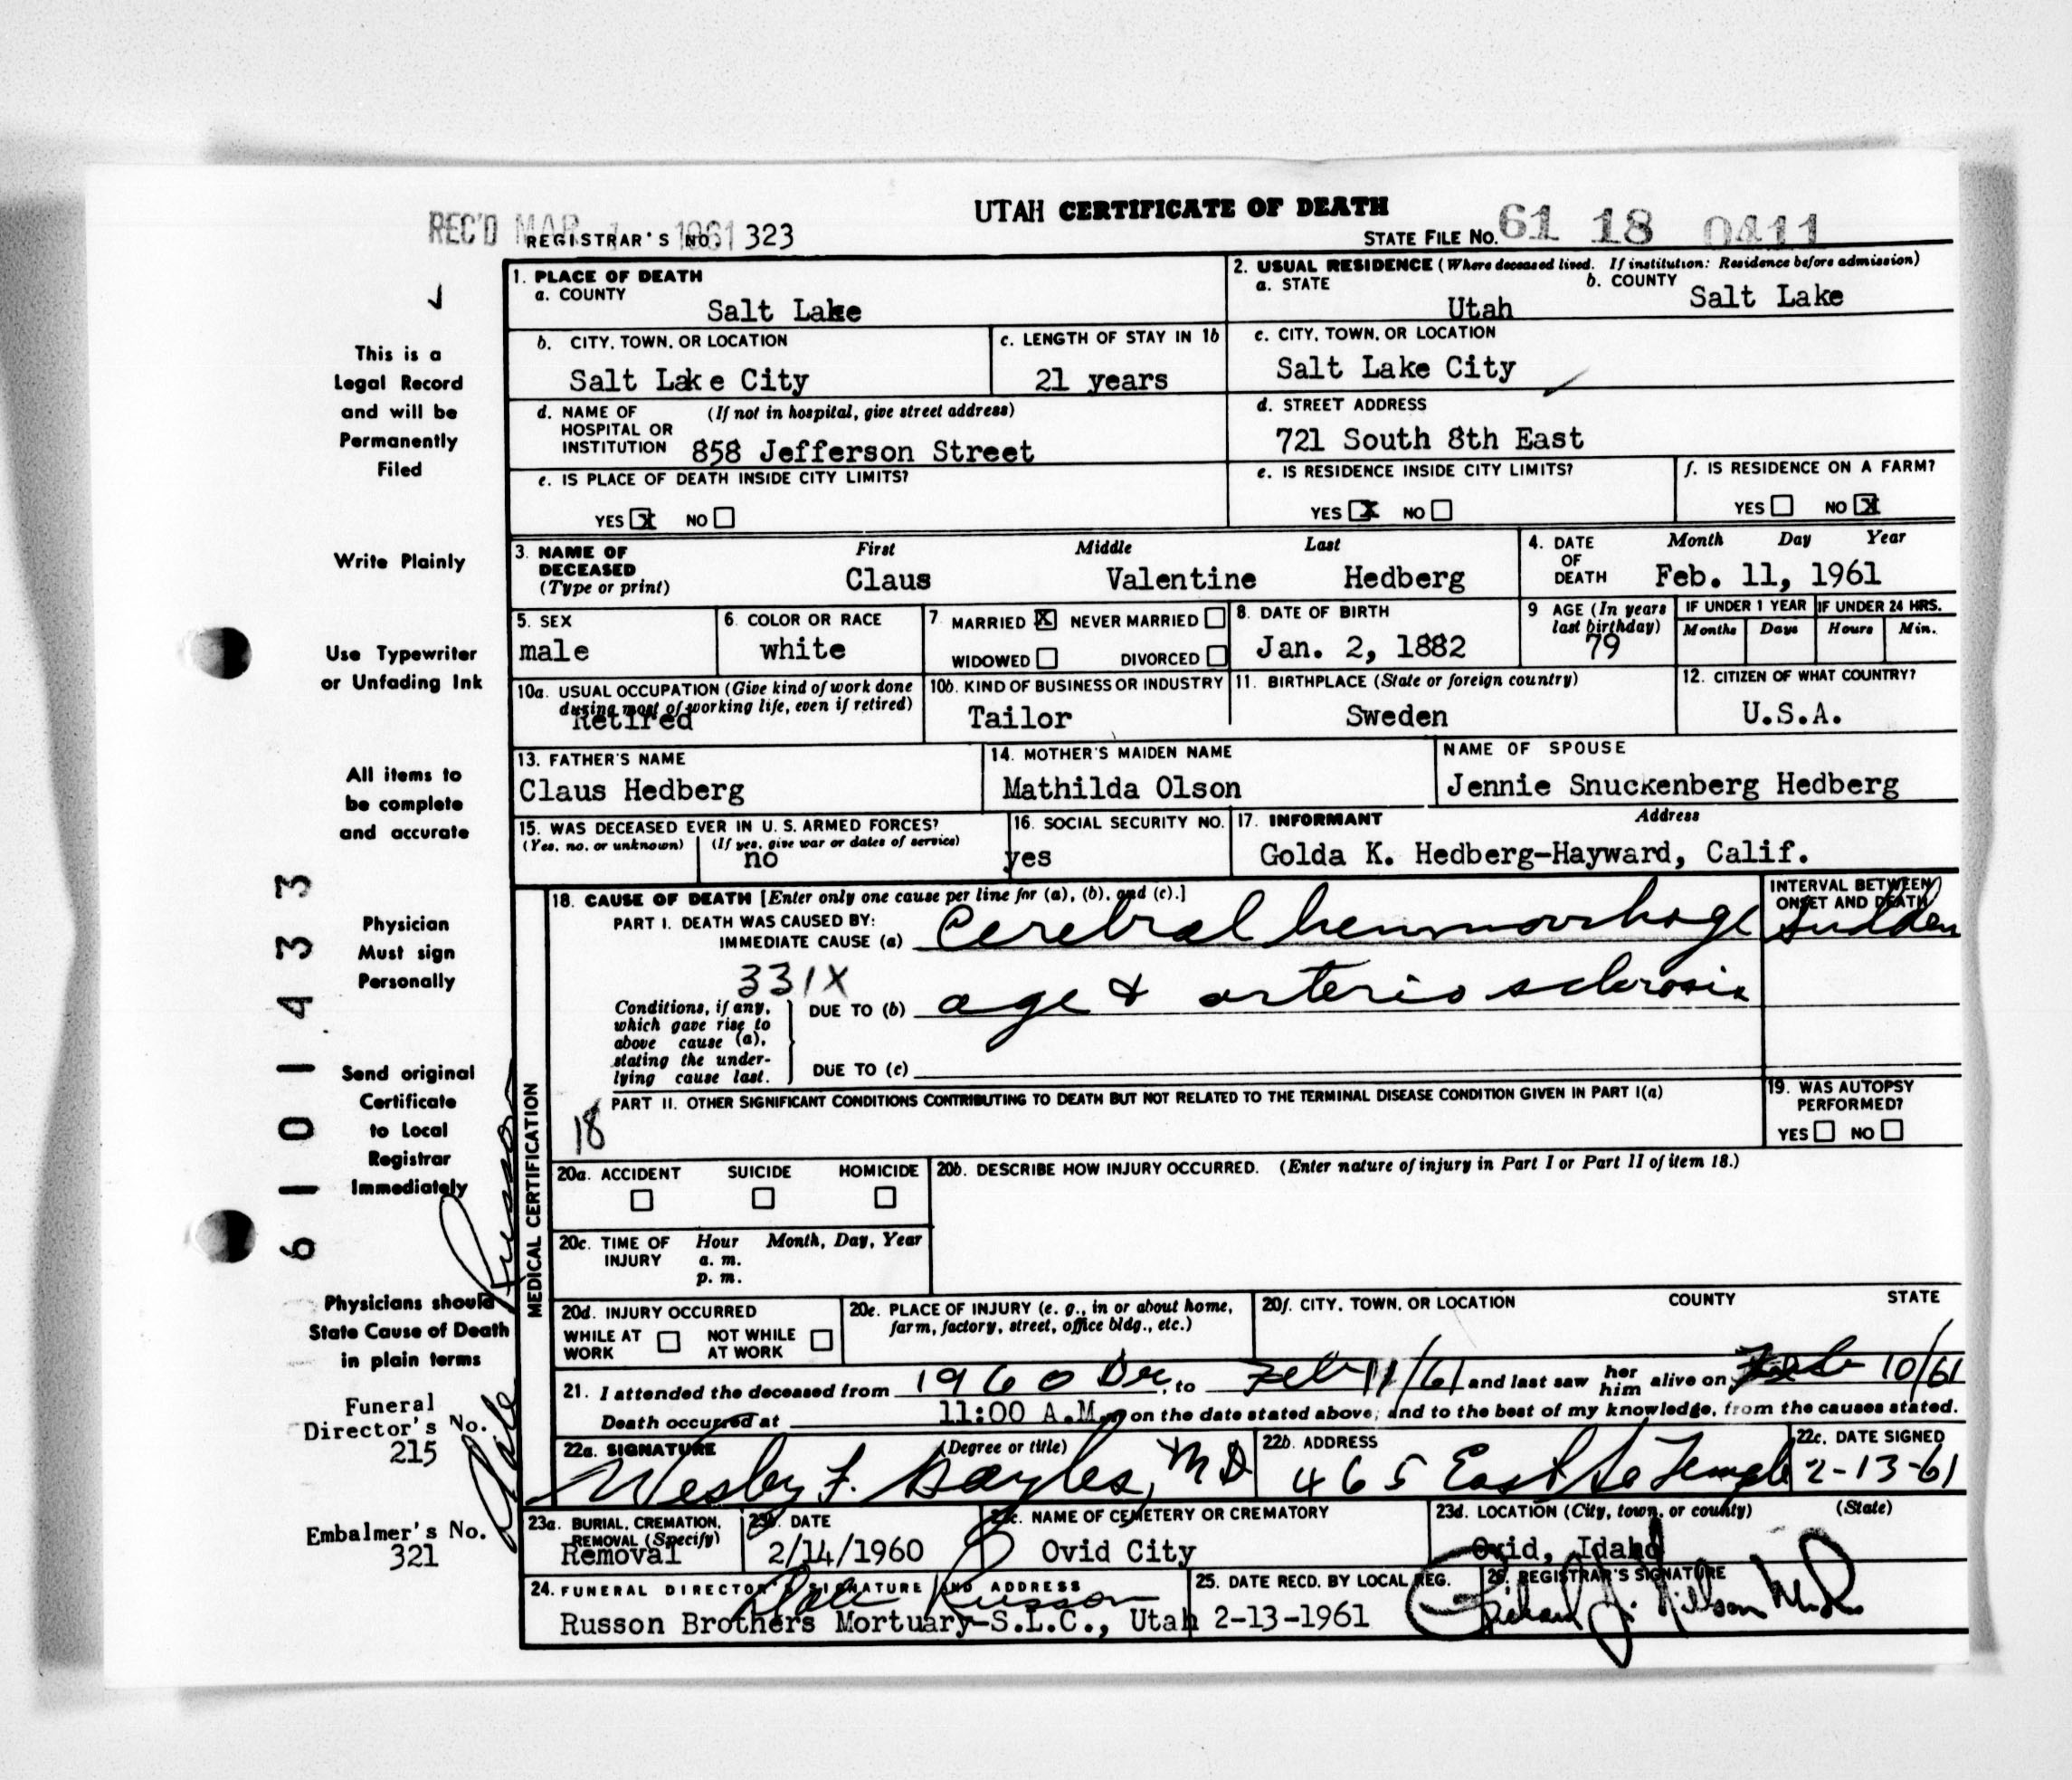 UTAH CERTIFICATE OF DEATH
REC'D MAR 1961
REGISTRAR'S NO. 323
STATE FILE NO. 61 18 0411
1. PLACE OF DEATH
a. COUNTY
Salt Lake
2. USUAL RESIDENCE (Where deceased lived. If institution: Residence before admission)
a. STATE
Utah
b. COUNTY
Salt Lake
b. CITY, TOWN, OR LOCATION
Salt Lake City
c. LENGTH OF STAY IN 1b
21 years
c. CITY, TOWN, OR LOCATION
Salt Lake City
d. NAME OF HOSPITAL OR INSTITUTION (If not in hospital, give street address)
858 Jefferson Street
d. STREET ADDRESS
721 South 8th East
e. IS PLACE OF DEATH INSIDE CITY LIMITS?
YES X NO
e. IS RESIDENCE INSIDE CITY LIMITS?
YES X NO
f. IS RESIDENCE ON A FARM?
YES NO X
3. NAME OF DECEASED (Type or print)
First Middle Last
Claus Valentine Hedberg
4. DATE OF DEATH
Month Day Year
Feb. 11, 1961
5. SEX
male
6. COLOR OR RACE
white
7. MARRIED X NEVER MARRIED
WIDOWED DIVORCED
8. DATE OF BIRTH
Jan. 2, 1882
9 AGE (In years last birthday)
79
IF UNDER 1 YEAR
Months Days
IF UNDER 24 HRS.
Hours Min.
10a. USUAL OCCUPATION (Give kind of work done during most of working life, even if retired)
Retired
10b. KIND OF BUSINESS OR INDUSTRY
Tailor
11. BIRTHPLACE (State or foreign country)
Sweden
12. CITIZEN OF WHAT COUNTRY?
U.S.A.
13. FATHER'S NAME
Claus Hedberg
14. MOTHER'S MAIDEN NAME
Mathilda Olson
NAME OF SPOUSE
Jennie Snuckenberg Hedberg
15. WAS DECEASED EVER IN U. S. ARMED FORCES?
(Yes, no, or unknown) (If yes, give war or dates of service)
no
16. SOCIAL SECURITY NO.
yes
17. INFORMANT Address
Golda K. Hedberg-Hayward, Calif.
MEDICAL CERTIFICATION
18. CAUSE OF DEATH [Enter only one cause per line for (a), (b), and (c).]
PART I. DEATH WAS CAUSED BY:
IMMEDIATE CAUSE (a) Cerebral hemmorrhage
INTERVAL BETWEEN ONSET AND DEATH
sudden
331X
Conditions, if any, which gave rise to above cause (a), stating the underlying cause last.
DUE TO (b) age & arterio sclerosis
DUE TO (c)
PART II. OTHER SIGNIFICANT CONDITIONS CONTRIBUTING TO DEATH BUT NOT RELATED TO THE TERMINAL DISEASE CONDITION GIVEN IN PART I(a)
18
19. WAS AUTOPSY PERFORMED?
YES NO
20a. ACCIDENT SUICIDE HOMICIDE
20b. DESCRIBE HOW INJURY OCCURRED. (Enter nature of injury in Part I or Part II of item 18.)
20c. TIME OF INJURY
Hour Month, Day, Year
a. m.
p. m.
20d. INJURY OCCURRED
WHILE AT WORK NOT WHILE AT WORK
20e. PLACE OF INJURY (e. g., in or about home, farm, factory, street, office bldg., etc.)
20f. CITY, TOWN, OR LOCATION COUNTY STATE
21. I attended the deceased from 1960 Dec, to Feb 11/61 and last saw her him alive on Feb 10/61
Death occurred at 11:00 A.M. on the date stated above; and to the best of my knowledge, from the causes stated.
22a. SIGNATURE (Degree or title)
Wesby F. Bayles, MD
22b. ADDRESS
465 East So Temple
22c. DATE SIGNED
2-13-61
23a. BURIAL, CREMATION, REMOVAL (Specify)
Removal
23b. DATE
2/14/1960
23c. NAME OF CEMETERY OR CREMATORY
Ovid City
23d. LOCATION (City, town, or county) (State)
Ovid, Idaho
24. FUNERAL DIRECTOR'S SIGNATURE AND ADDRESS
Dale Russon
Russon Brothers Mortuary-S.L.C., Utah
25. DATE RECD. BY LOCAL REG.
2-13-1961
26. REGISTRAR'S SIGNATURE
Richard J. Nilson M.D.
This is a
Legal Record
and will be
Permanently
Filed
Write Plainly
Use Typewriter
or Unfading Ink
All items to
be complete
and accurate
Physician
Must sign
Personally
Send original
Certificate
to Local
Registrar
Immediately
Physicians should
State Cause of Death
in plain terms
Funeral
Director's No.
215
Embalmer's No.
321
Dale Russon
6 1 0 1 4 3 3